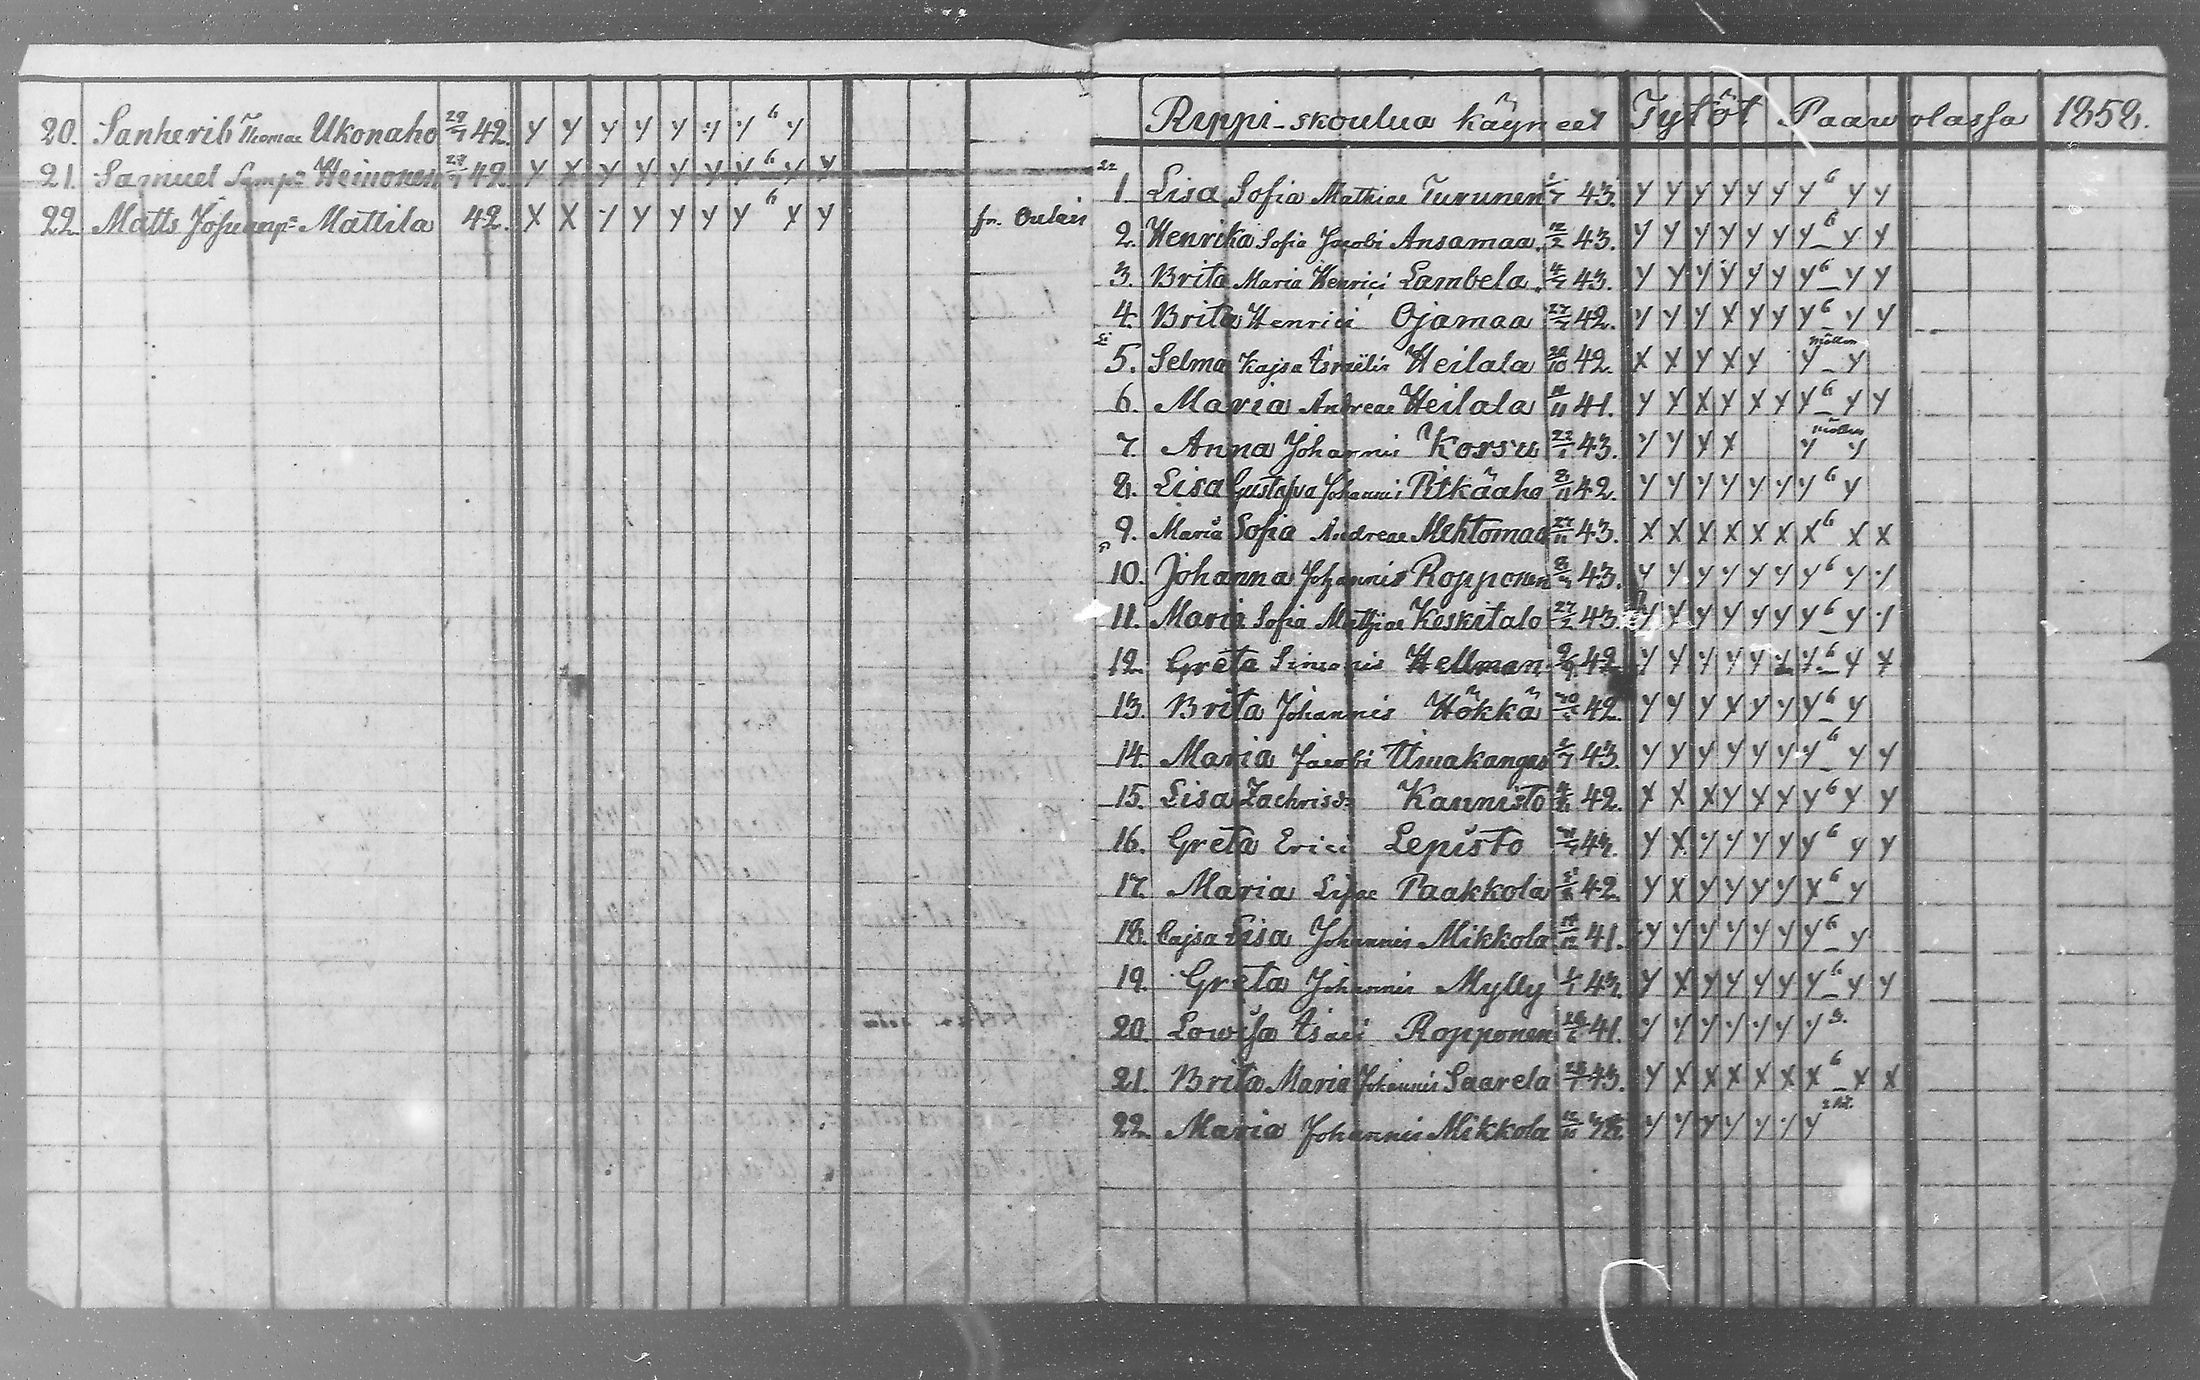 20. Sanherib Thomae Ukonaho 42. y y y y y y y 6 y
21. Samuel Heinonen 42. y x y y y y y 6 y y
22. Matts Mattila 42. x x y y y y y 6 x y fr. Oulais
Rippi-skoulua käyneet Tytöt Paawolassa 1858.
1. Lisa Sofia Mathiae Turunen 43. y y y y y y y 6 y y
2. Henrika Sofia Jacobi Ansamaa 12/2 43. y y y y y y y 6 y y
3. Brita Maria Henrici Lambela 43. y y y y y y y 6 y y
4. Brita Henrici Ojamaa 42. y y y x y y y 6 y y
5. Selma Kajsa Israëlis Heilala 20/10 42. x x y x y y y
6. Maria Andreae Heilala 41. y y x y x y y 6 y y
7. Anna Johannis Korsu 43. y y x x y y
8. Lisa Gustafva Johannis Pitkäaho 8/11 42. y y y y y y y 6 y
9. Maria Sofia Andreae Mehtomaa 43. x x x x x x x 6 x x
10. Johanna Johannis Ropponen 43. y y y y y y y 6 y y
11. Maria Sofia Mathiae Keskitalo 27/2 43. y y y y y y y 6 y y
12. Greta Simonis Hellman 42. y y y y y y y 6 y y
13. Brita Johannis Hökkä 42. y y y x y y y 6 y
14. Maria Jacobi 43. y y y y y y y 6 y y
15. Lisa Zachrisdr Kannisto 42. x x x y x y y 6 y y
16. Greta Erici Lepisto 43. y x y y y y y 6 y y
17. Maria Paakkola 42. y x y y y y x 6 y
18. Cajsa Lisa Johannis Mikkola 41. y y y y y y y 6 y
19. Greta Johannis Mylly 43. y x y y y y y 6 y y
20. Lowisa Isaci Ropponen 41. y y y y y y y 3.
21. Brita Maria Johannis Saarela 43. y x x x x x x 6 x x
22. Maria Johannis Mikkola y y y y y y y